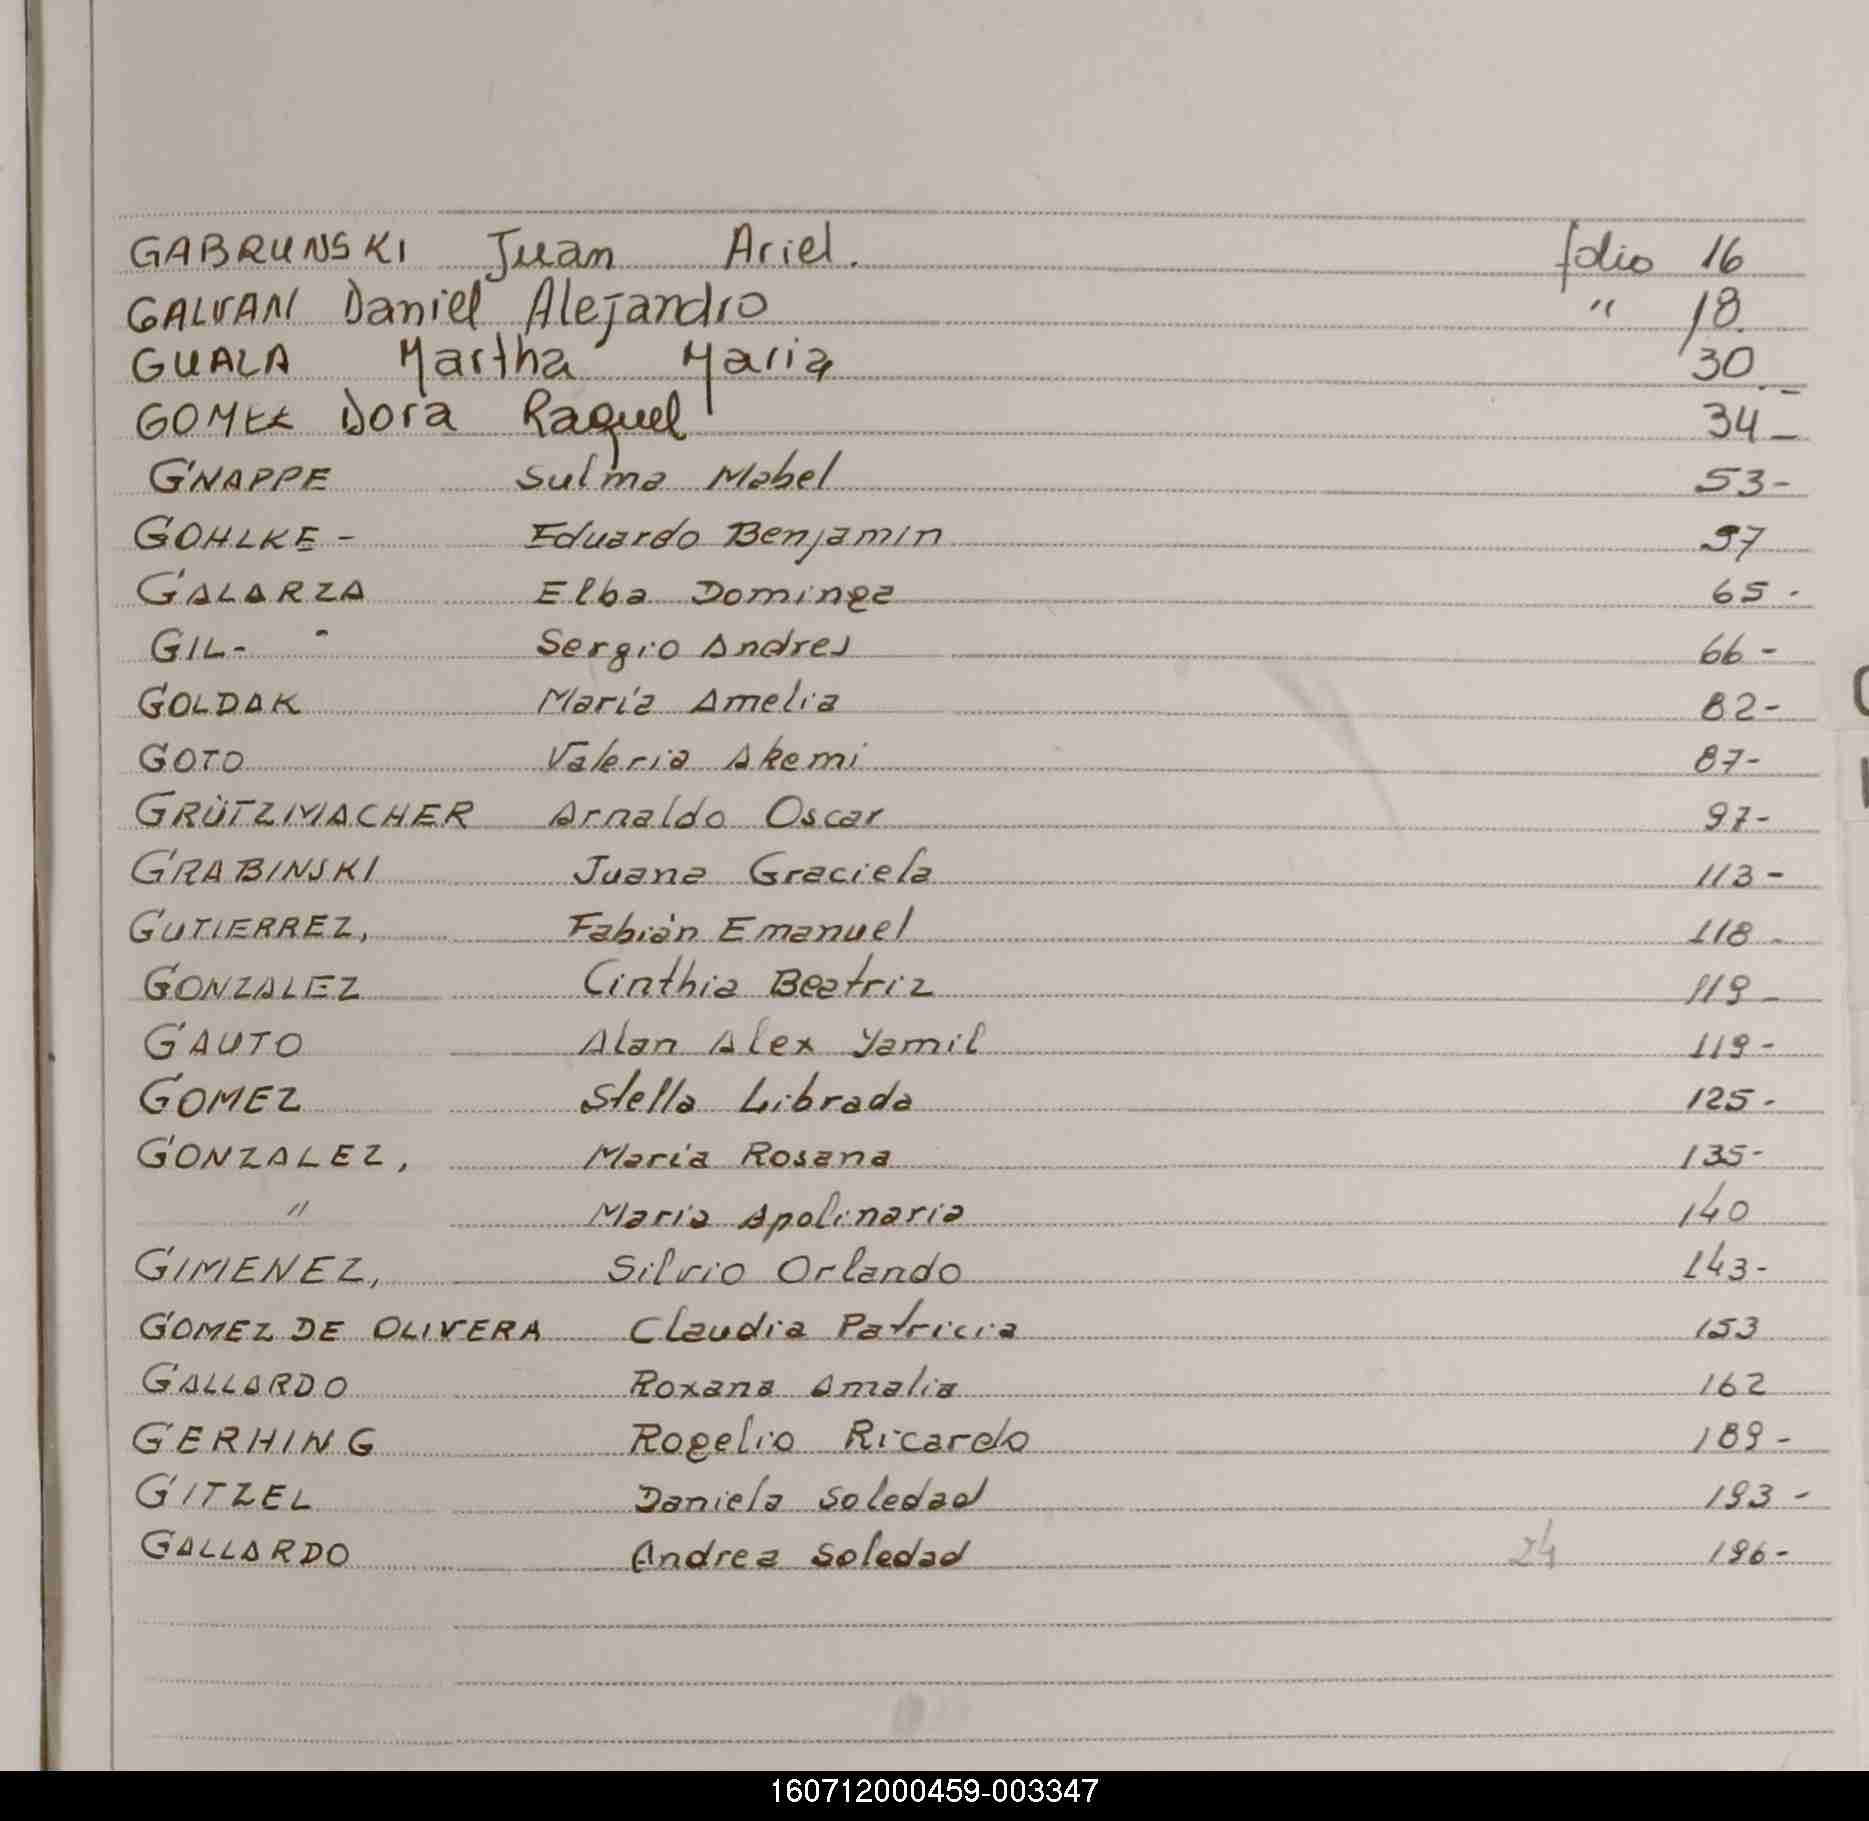 GABRUNSKI Juan Ariel. folio 16
GALVAN Daniel Alejandro " 18
GUALA Martha Maria 30
GOMEZ Dora Raquel 34-
GNAPPE Sulma Mabel 53-
GOHLKE- Eduardo Benjamin 57
GALARZA Elba Dominga 65-
GIL- Sergio Andres 66-
GOLDAK María Amelia 82-
GOTO Valeria Akemi 87-
GRÜTZMACHER Arnaldo Oscar 97-
GRABINSKI Juana Graciela 113-
GUTIERREZ, Fabián Emanuel 118-
GONZALEZ Cinthia Beatriz 119-
GAUTO Alan Alex Yamil 119-
GOMEZ Stella Librada 125-
GONZALEZ, María Rosana 135-
" Maria Apolinaria 140
GIMENEZ, Silvio Orlando 143-
GOMEZ DE OLIVERA Claudia Patricia 153
GALLARDO Roxana Amalia 162
GERHING Rogelio Ricardo 189-
GITZEL Daniela Soledad 193-
GALLARDO Andrea Soledad 24 196-
160712000459-003347